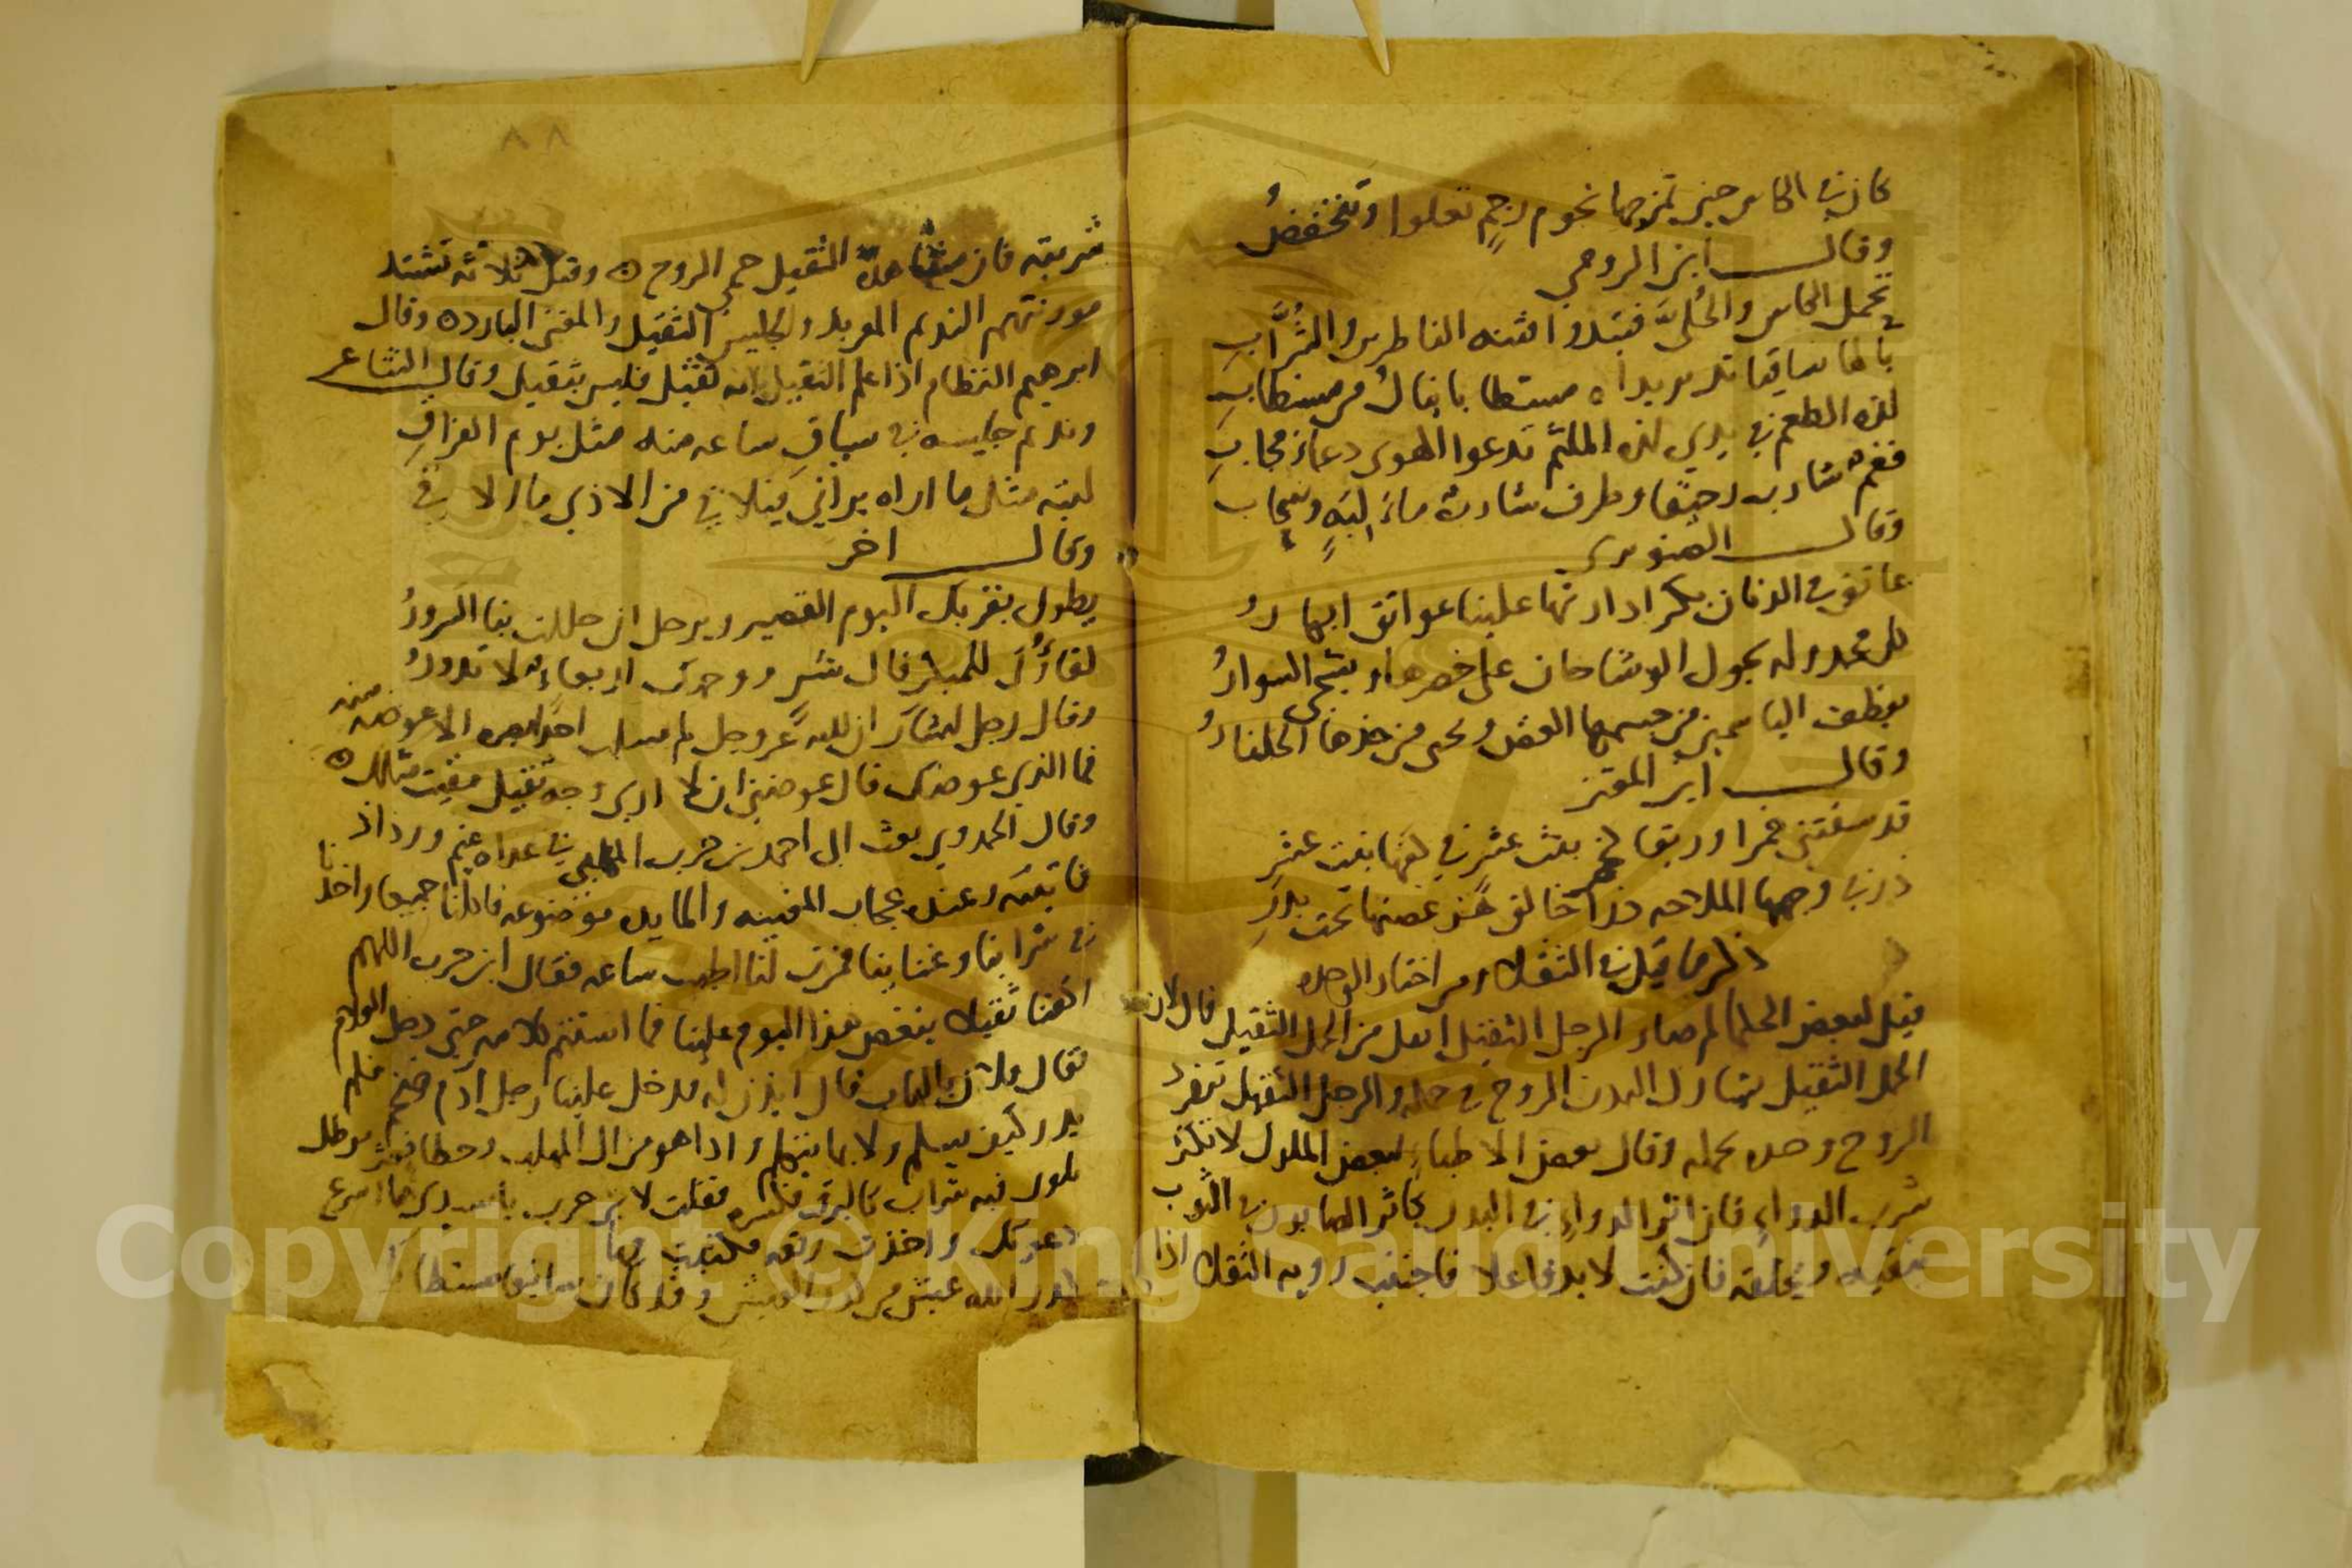 كان في الكاس حين تمزجها نجوم رجم تعلوا وتنخفض
وقال ابن الرومي
تحمل الكاس والحلي فتبدوا فتنه الناظرين والشراب
يا لها ساقيا تدير يداه مستطابا ينال من مستطاب
لذه الطعم في يدي لذه الملثم تدعوا الهوى دعاء مجاب
وقال الصنوبري
عاتق في الدنان بكر ادارتها علينا عواتق ابكار
يجول الوشاحان على خصرها
يقطف الياسمين من جسمها الغض ويجنى من خدها الجلنار
وقال ابن المعتز
قد سقتني خمرا وريقا
في وجهها الملاحه خالق غصنها تحت بدر
ذكر ما قيل في الثقلا ومن اختار الوحده
قيل لبعض الحكما لم صار الرجل الثقيل اثقل من الحمل الثقيل قال لان
الحمل الثقيل يشارك البدن الروح في حمله والرجل الثقيل تنفرد
الروح وحده بحمله وقال بعض الاطباء لبعض الملوك لا تكثر
شرب الدواء فان اثر الدواء في البدن كاثر الصابون في الثوب
ينقيه ويخلقه فان كنت لا بد فاعلا فاجتنب رويه الثقلا اذا
شربته فان مشاهده الثقيل حمى الروح ه وقيل ثلاثه تشتد
مونتهم النديم المعربد والجليس الثقيل والمغنى البارد ه وقال
ابرهيم النظام اذا علم الثقيل بانه ثقيل فليس بثقيل وقال الشاعر
ونديم جليسه في سياق ساعه منه مثل يوم الفراق
ليته مثل ما اراه يراني فيلاقي من الاذي ما الاقي
وقال اخر
يطول بقربك اليوم القصير ويرحل ان حللت بنا السرور
لقاؤك للمبكر فال شر ووجهك اربعاء لا تدور
وقال رجل لبشار ان الله عز وجل لم يسلب احدا بصره الا عوضه منه
فما الذي عوضك قال عوضني ان لا اري وجه ثقيل مقيت مثلك ه
وقال الحمدوي بعث الى احمد بن حرب المهلبي في غداه غيم ورذاذ
فاتيته وعنده عجاب المغنيه والمايده موضوعه فاكلنا جميعا واخذنا
في شرابنا وغناينا فمرت لنا اطيب ساعه فقال ابن حرب اللهم
اكفنا ثقيلا ينغص هذا اليوم علينا فما استتم كلامه حتى دخل الغلام
فقال فلان بالباب قال ايذن له فدخل علينا رجل ادم ضخم فلم
يدر كيف يسلم ولا بما يتكلم واذا هو من ال المهلب وخطا فعثر
بلور فيه شراب كالبرق فكسره فقلت لابن حرب يا سيدي ما اسرع
دعوتك واخذت رقعه فكتبت فيها
كدر الله عيش من كدر العيش وقد كان صافيا مستطابا